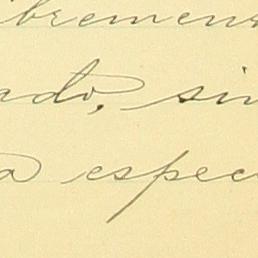 ibremen
ado, sin
a espec